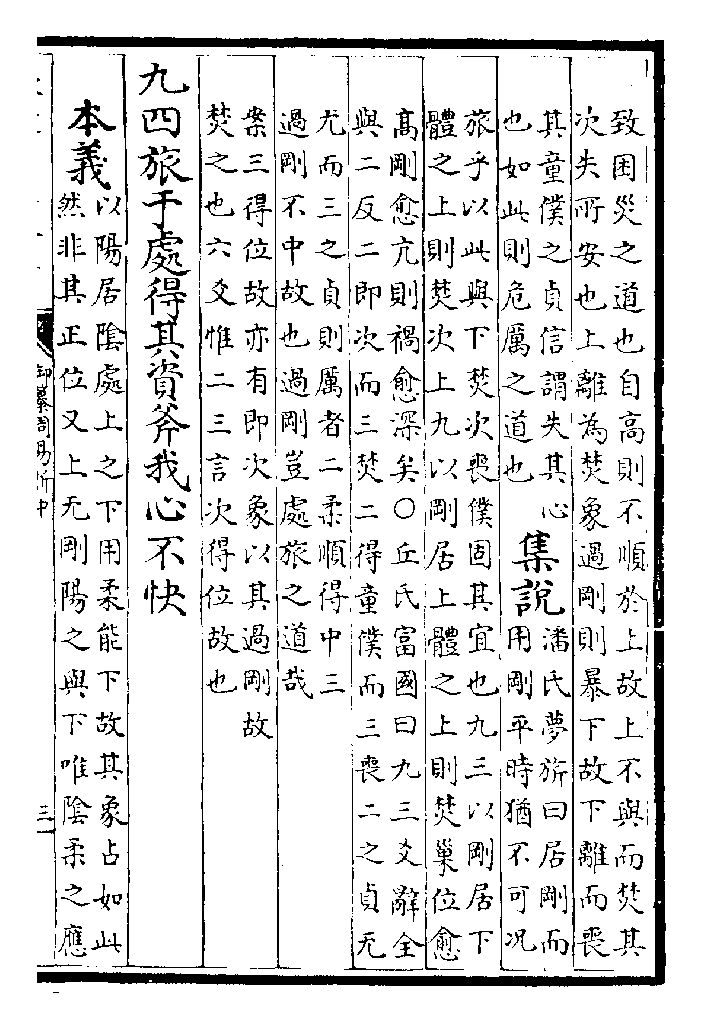 致困災之道也自高則不順於上故上不與而焚其
次失所安也上離為焚象過剛則暴下故下離而喪
其童僕之貞信謂失其心
也如此則危厲之道也
集說
潘氏夢旂曰居剛而
用剛平時猶不可况
旅乎以此與下焚次喪僕固其宜也九三以剛居下
體之上則焚次上九以剛居上體之上則焚巢位愈
髙剛愈亢則禍愈深矣○丘氏富國曰九三爻辭全
與二反二即次而三焚二得童僕而三喪二之貞无
尤而三之貞則厲者二柔順得中三
過剛不中故也過剛豈處旅之道哉
案三得位故亦有即次象以其過剛故
焚之也六爻惟二三言次得位故也
九四旅于處得其資斧我心不快
本義
以陽居陰處上之下用柔能下故其象占如此
然非其正位又上无剛陽之與下唯陰柔之應
御纂周易折中
三